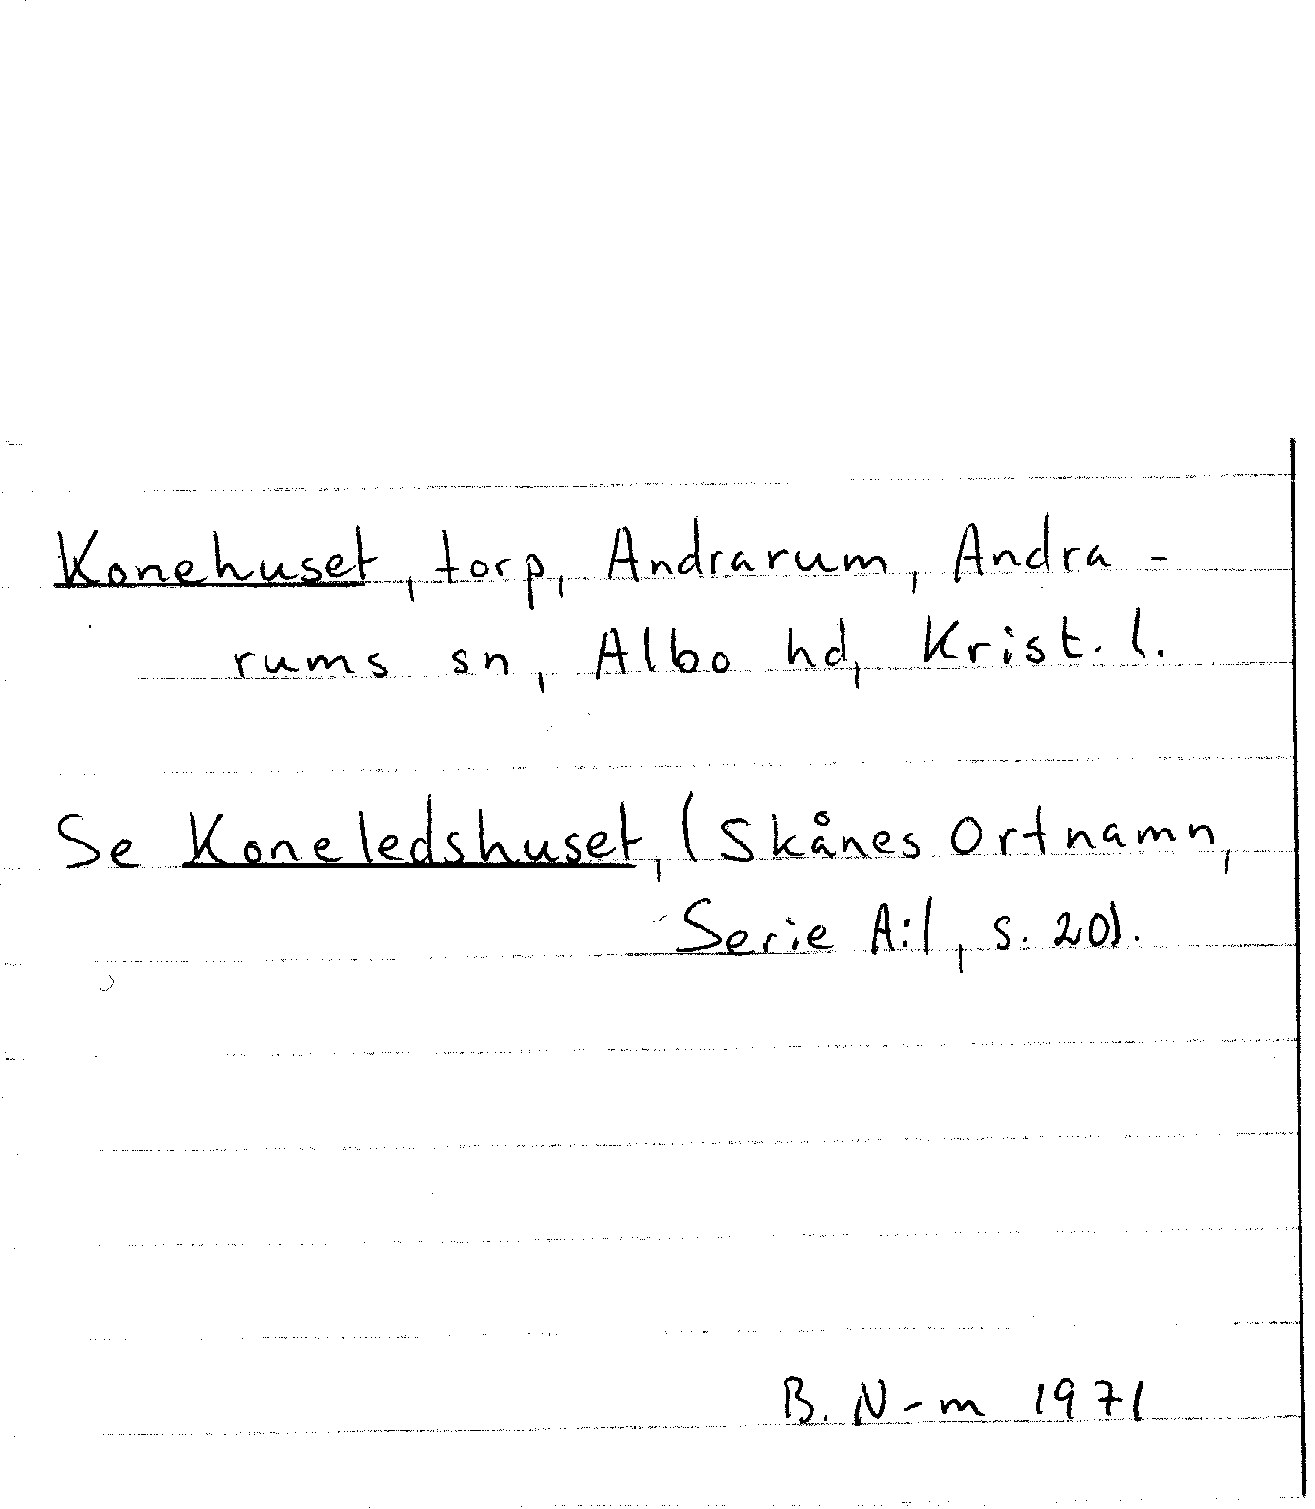 Konehuset, torp, Andrarum, Andra-
rums sn, Albo hd, Krist. l.
Se Koneledshuset, (Skånes Ortnamn,
Serie A:1, s. 20).
B. N-m 1971